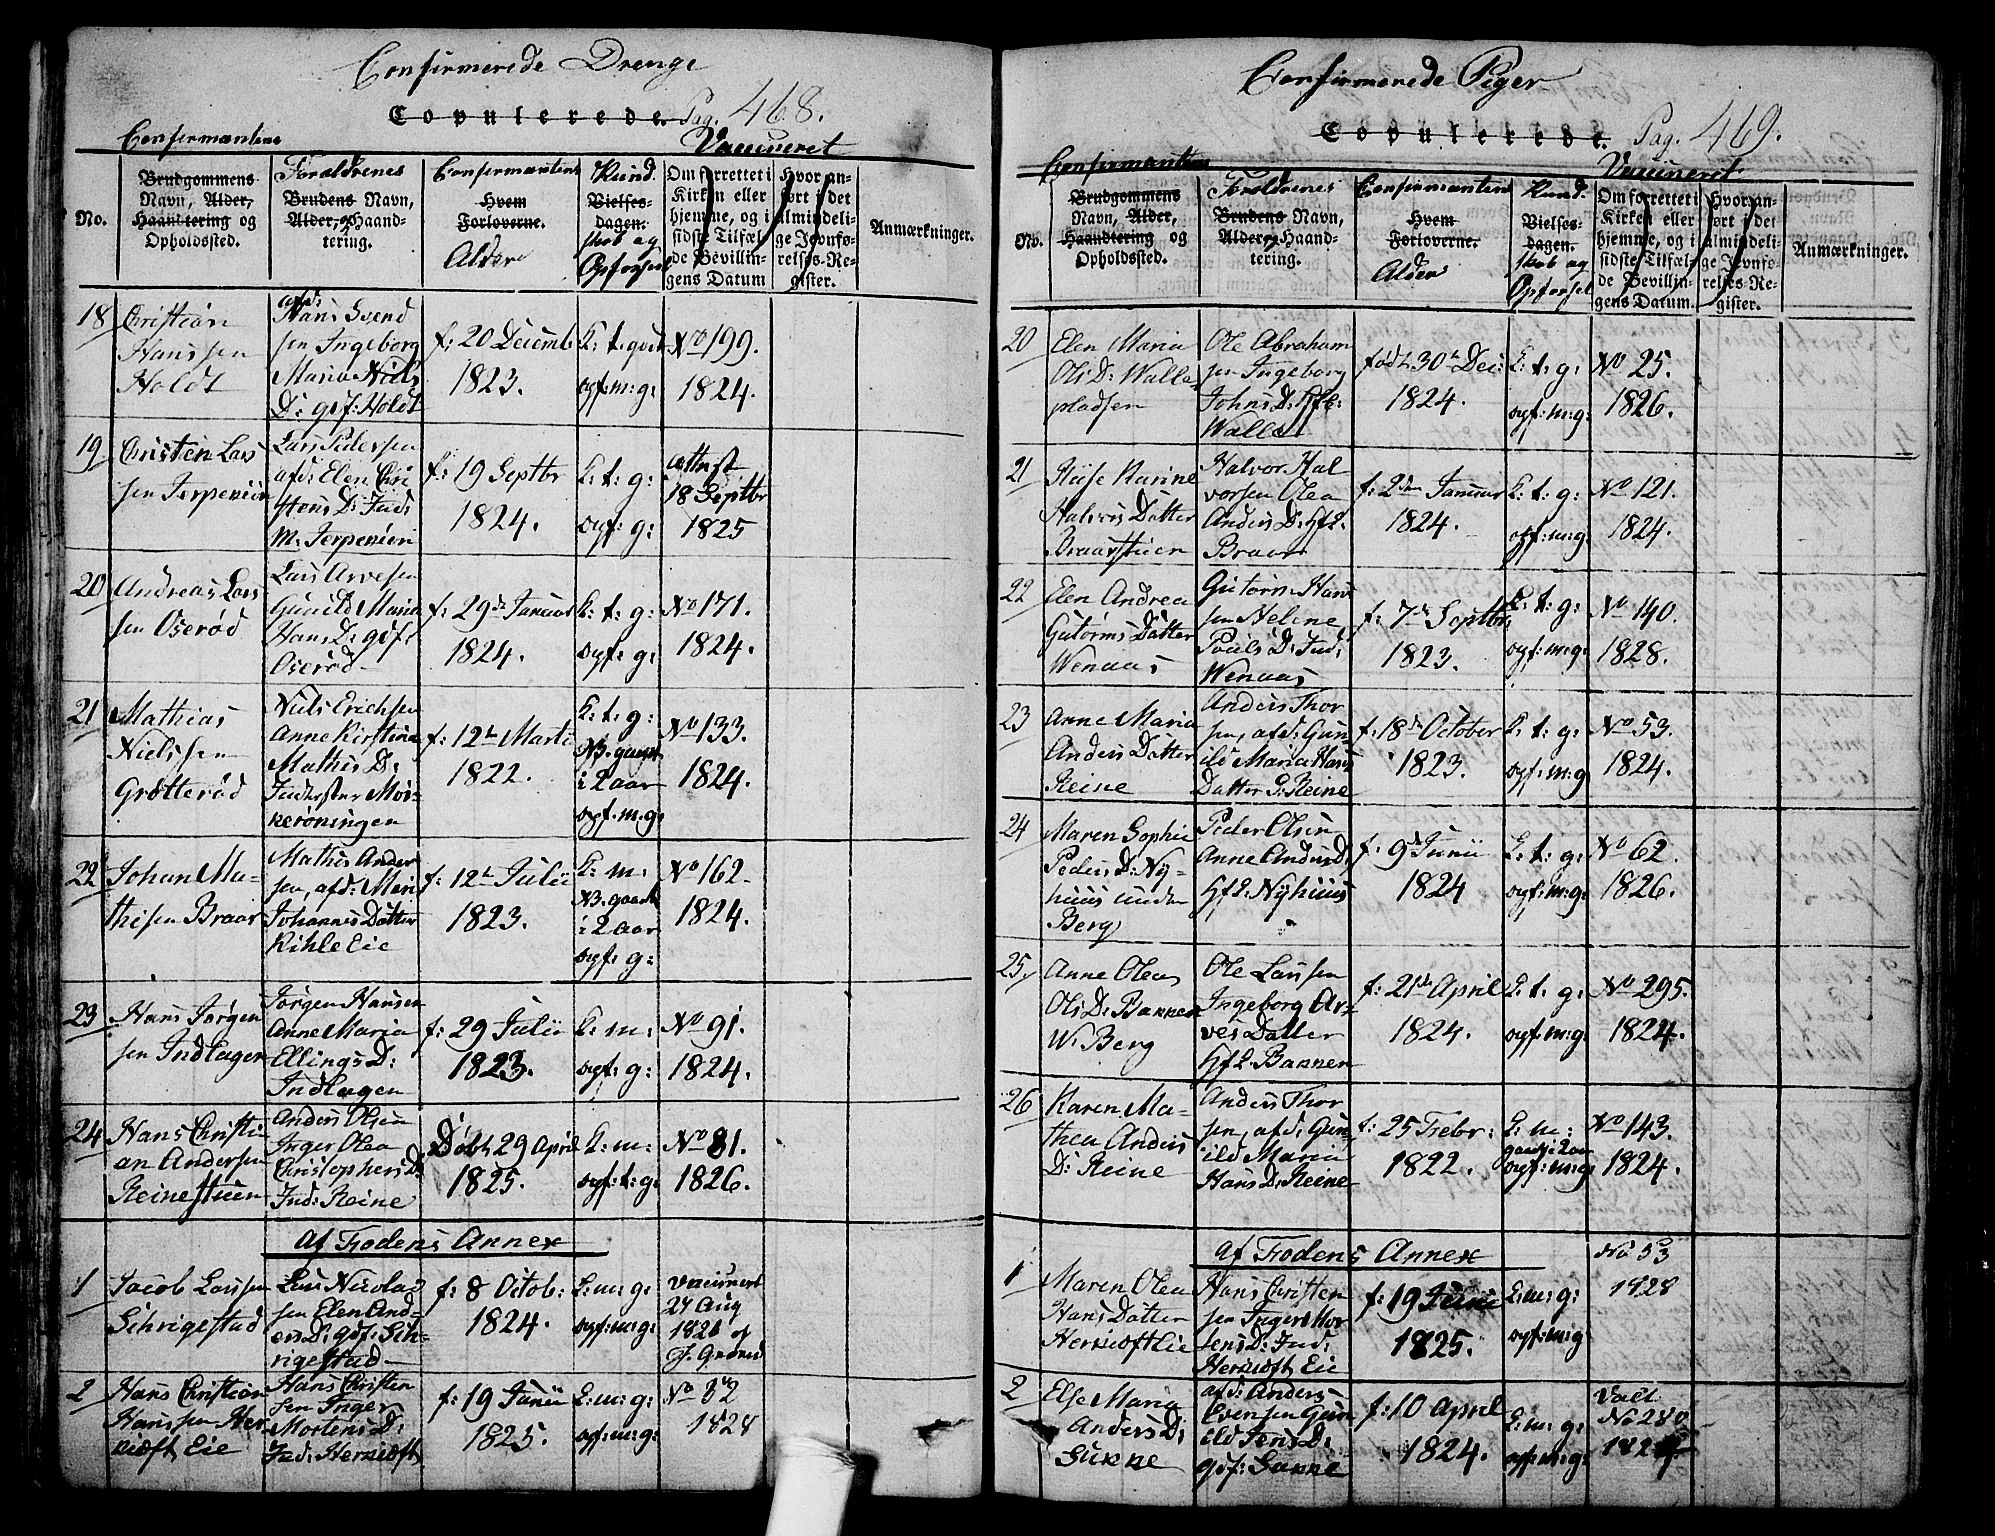 Confirmerede Drenge
Copulerede. Pag. 468.
Confirmantens
Vaccineret
No.
Brudgommens Navn, Alder, Haandtering og Opholdssted.
Forældrenes
Brudens Navn, Alder, og Haandtering.
Confirmantens
Hvem Forloverne.
Alder
Kund
Vielses-dagen.
skab og
Opførsel
Om forrettet i Kirken eller hjemme, og i sidste Tilfælde Bevillingens Datum
Hvor anført i det almindelige Jevnførelses-Register.
Anmærkninger.
18
Christian
Hanssen
Holdt
afd:
Hans Svend
sen Ingeborg
Maria Niels
D: gdf: Holdt
f: 20 Decemb
1823.
K: t. godt
opf: m: g:
No 199.
1824.
19
Christen Lars
sen Terpenien
Lars Pedersen
afd: Elen Chri
stens D: Ind:
M. Terpenien
f: 19 Septbr
1824.
K: t: g:
opf: g:
attest
18 Septbr
1825
20
Andreas Lars
sen Oserød
Lars Arvesen
Gunild Maria
Hans D: gdf:
Oserød
f: 29de Januar
1824.
K: t: g:
opf: g:
No 171.
1824.
21
Mathias
Nielssen
Grøtterød
Niels Erichsen
Anne Kirstine
Mathis D:
Inderster Mør-
kerøningen
f: 12te Marti
1822.
K: t: g:
NB. gaaet
i 2 aar
opf. m. g:
No 133.
1824.
22
Johan Ma-
thisen Braar
Mathis Ander
sen, afd: Mari
Johannes Datter
Kihle Eie
f: 12te Julii
1823.
K: m:
NB. gaaet
i 2 aar
opf: g:
No 162
1824.
23
Hans Jørgen
sen Indlagen
Jørgen Hansen
Anne Maria
Ellings D:
Indlagen
f: 29 Julii
1823.
K: m:
opf: g:
No 91.
1824.
24
Hans Christi
an Andersen
Reinestuen
Anders Olsen
Inger Olea
Christophers D
Ind: Reine
Døbt 29 April
1825.
K: m:
opf: t: g:
No 81.
1826.
af Frodens Annex
1
Jacob Larssen
Schrigestad
Lars Nicolai
sen Elen And-
ers D: gdf: Sch-
rigestad
f: 8 Octob:
1824.
K: m: g:
opf: m: g:
vaccineret
24 Aug
1826 af
J. Grøned
2
Hans Christian
Hanssen Her
kiøft Eie
Hans Christen
sen Inger
Mortens D:
Ind: Herkiøft
f: 19 Junii
1825.
K: m: g:
opf: m: g:
No 32
1828
Confirmerede Piger
Copulerede. Pag. 469.
Confirmantens
Vaccineret
No.
Brudgommens Navn, Alder, Haandtering og Opholdssted.
Forældrenes
Brudens Navn, Alder og Haandtering.
Confirmantens
Hvem Forloverne.
Alder
Kund
Vielses-dagen.
skab og
Opførsel
Om forrettet i Kirken eller hjemme, og i sidste Tilfælde Bevillingens Datum.
Hvor anført i det almindelige Jevnførelses-Register.
Anmærkninger.
20
Elen Maria
Ols D: Walle
pladsen
Ole Abraham
sen Ingeborg
Johns D: Hfl:
Walle
født 30te Dec:
1824.
K: t: g:
opf: m: g:
No 25.
1826.
21
Karine
Halvors Datter
Braarstuen
Halvor Hal
vorsen Olea
Anders D: Hfl.
Braar
f: 2den Januar
1824.
K: t: g:
opf: m: g:
No 121.
1824.
22
Elen Andrea
Gutorms Datter
Wenaas
Gutorm Hans
sen Helene
Poels D: Ind:
Wenaas
f: 7de Septbr
1823.
K: t: g:
opf: m: g:
No 140.
1828.
23
Anne Maria
Anders Datter
Reine
Anders Thor
sen, afd: Gun
ild Maria Hans
Datter G: Reine
f: 18de October
1823.
K: t: g:
opf: m: g
No 53.
1824.
24
Maren Sophie
Peders D: Ny-
huus under
Berg
Peder Olsen
Anne Anders D:
Hfl: Nyhuus
f: 9de Junii
1824
K: t: g:
opf: m: g:
No 62.
1826.
25
Anne Olea
Ols D: Bakken
W. Berg
Ole Larssen
Ingeborg Ar-
ves Datter
Hfl. Bakken
f: 21de April
1824.
K: t: g:
opf: m: g:
No 295.
1824.
26
Karen Ma-
thea Anders
D: Reine
Anders Thor
sen, afd: Gun
ild Maria
Hans D: Reine
f: 25 Febr:
1822.
K: m:
gaaet i 2 aar
opf: m: g
No 143.
1824.
af Frodens Annex
1
Maren Olea
Hans Datter
Herkiøft Eie
Hans Christen
sen Inger Mor
tens D: Ind:
Herkiøft Eie
f: 19 Junii
1825.
K: m: g:
opf: m: g
No 53
1828
2
Else Maria
Anders D:
Sukke
afd: Anders
Evensen Gun
ild Jens D:
gdf: Sukke
f: 10 April
1824.
K: m: g:
opf: m: g:
No 280